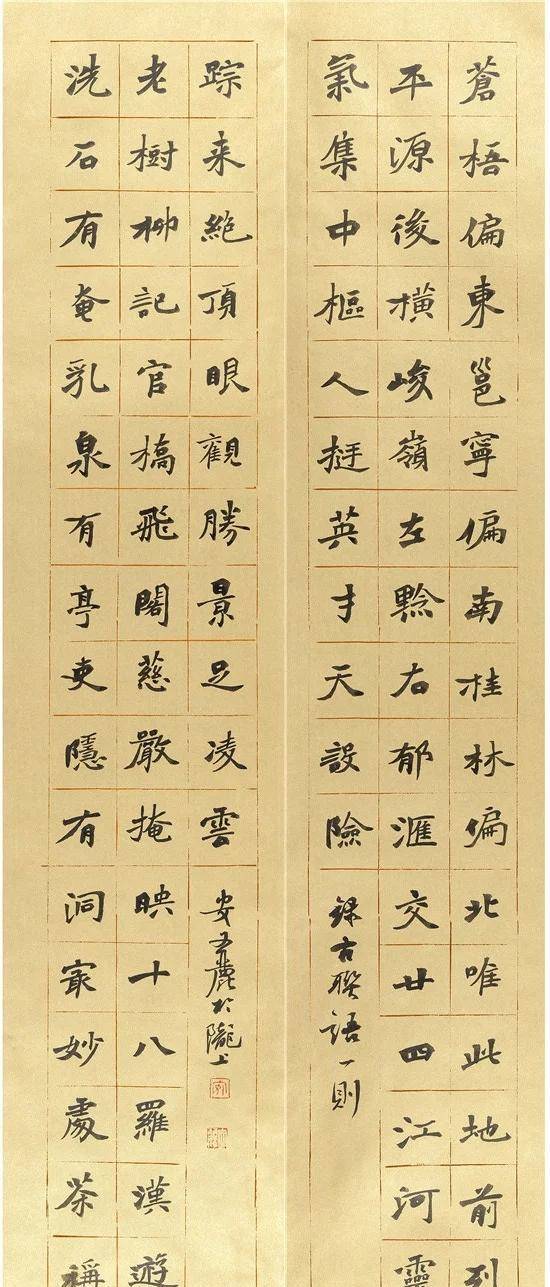 蒼梧偏東邕寧偏南桂林偏北唯此地前列
平源後橫峻嶺左黔右郁滙交廿四江河靈
氣集中樞人挺英才天設險
錄古聯語一則
洗石有奄乳泉有亭吏隱有洞最妙處茶稱
老樹柳記官橋飛閣慈嚴掩映十八羅漢遊
踪来絕頂眼觀勝景足凌雲
安於隴上